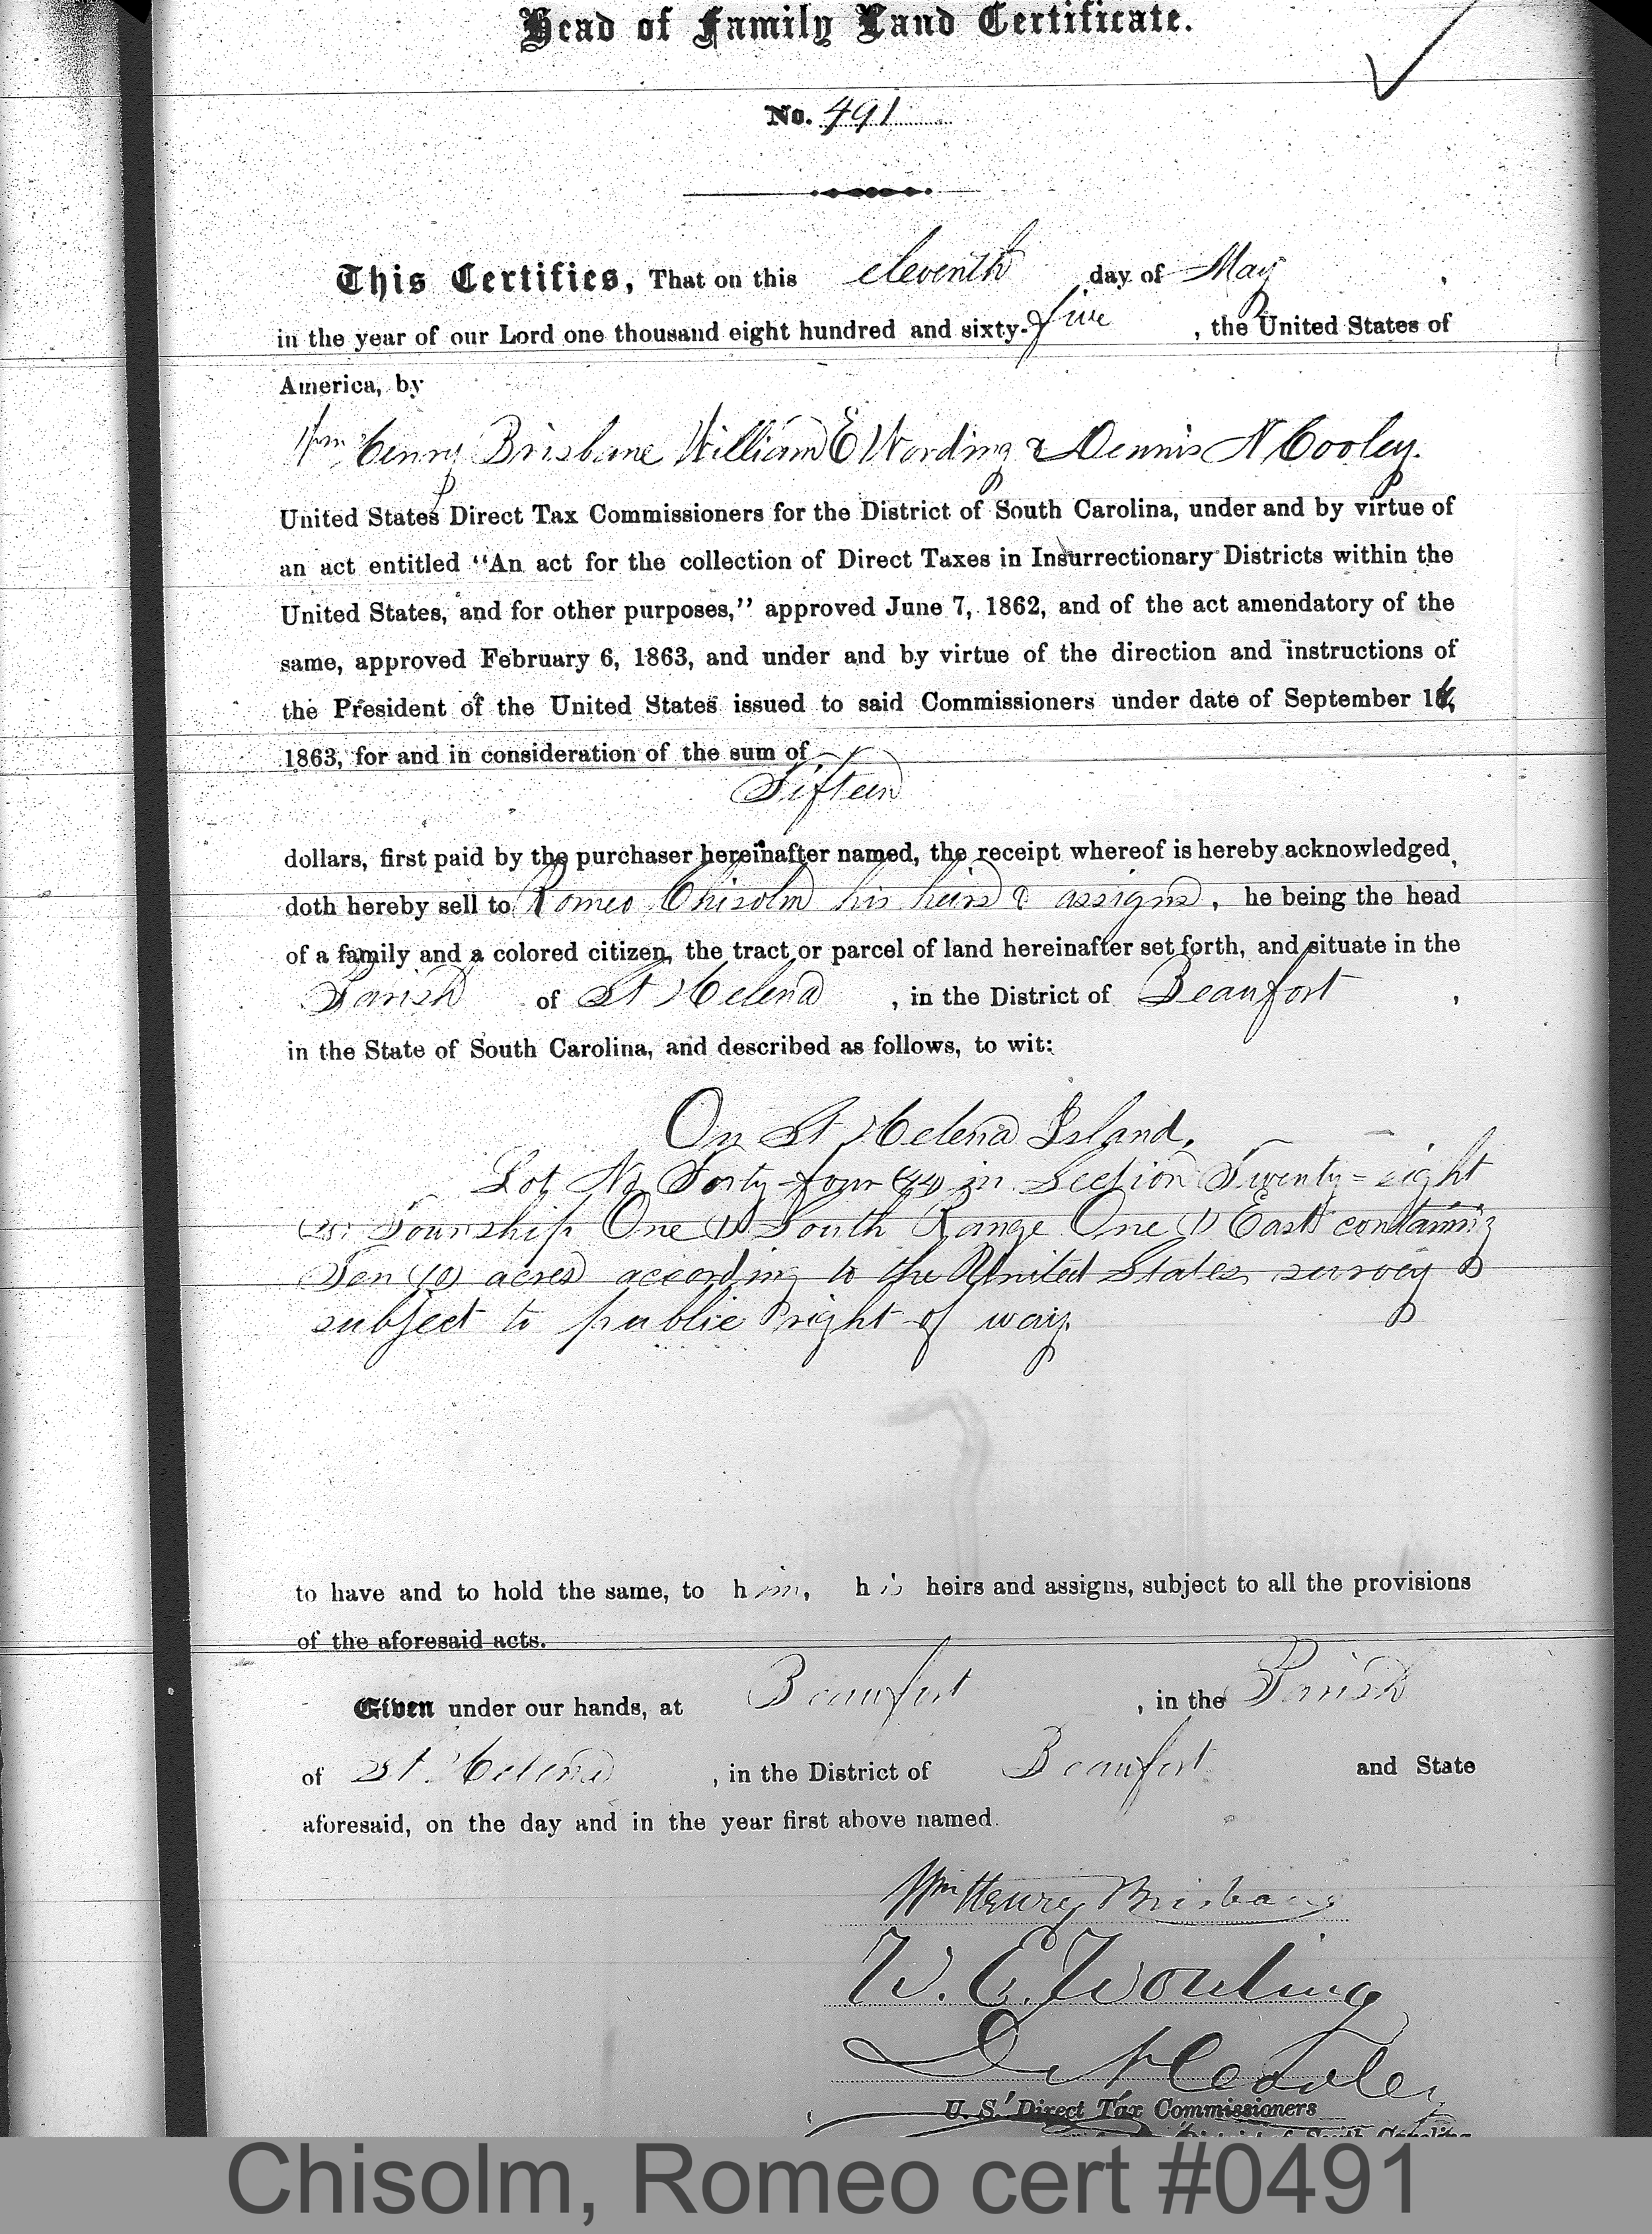 Head of Family Land Certificate.
No. 491
This Certifies, That on this eleventh day of May,
in the year of our Lord one thousand eight hundred and sixty-five, the United States of
America, by
Wm Henry Brisbane William E Wording & Dennis N Cooley.
United States Direct Tax Commissioners for the District of South Carolina, under and by virtue of
an act entitled “An act for the collection of Direct Taxes in Insurrectionary Districts within the
United States, and for other purposes,” approved June 7, 1862, and of the act amendatory of the
same, approved February 6, 1863, and under and by virtue of the direction and instructions of
the President of the United States issued to said Commissioners under date of September 16,
1863, for and in consideration of the sum of
Fifteen
dollars, first paid by the purchaser hereinafter named, the receipt whereof is hereby acknowledged,
doth hereby sell to Romeo Chisolm his heirs & assigns, he being the head
of a family and a colored citizen, the tract or parcel of land hereinafter set forth, and situate in the
Parish of St Helena, in the District of Beaufort,
in the State of South Carolina, and described as follows, to wit:
On St Helena Island.
Lot No Forty-four (44) in Section Twenty-eight
(28) Township One (1) South Range One (1) East containing
Ten (10) acres according to the United States survey &
subject to public right of way.
to have and to hold the same, to him, his heirs and assigns, subject to all the provisions
of the aforesaid acts.
Given under our hands, at Beaufort, in the Parish
of St Helena, in the District of Beaufort and State
aforesaid, on the day and in the year first above named.
Wm Henry Brisbane
W. E. Wording
D. N. Cooley
U. S. Direct Tax Commissioners
District of South Carolina
Chisolm, Romeo cert #0491